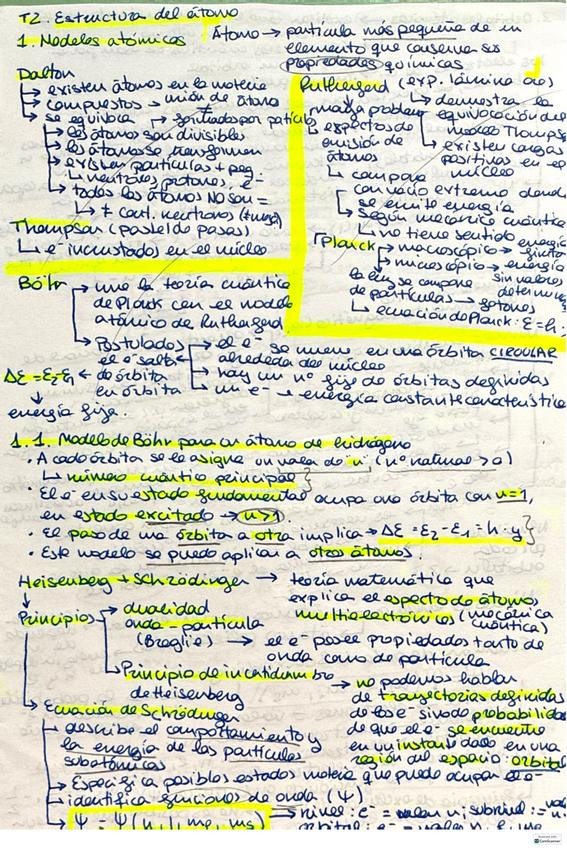 T2. Estructura del átomo
1. Modelos atómicos
Átomo → partícula más pequeña de un
elemento que conserva sus
propiedades químicas
Dalton
↳ existen átomos en la materia
↳ compuestos → unión de átomo
↳ se equivoca → formados por partícula
↳ los átomos son divisibles
↳ los átomos se transforman
↳ existen partículas + peq
↳ neutrones, protones, e-
↳ todos los átomos No son =
↳ ≠ cant. neutrones
Thompson (pastel de pasas)
↳ e- incrustados en el núcleo
Rutherford (exp. lámina oro)
↳ demuestra la
equivocación del
modelo Thomps
↳ existen cargas
positivas en el
núcleo
problem
↳ espectros de
emisión de
átomos
↳ compara
con vacío extremo dond
se emite energía
↳ Según mecánica cuántica
↳ no tiene sentido
Planck
↳ macroscópico → energía
↳ microscópico → energía
sin valores
determin
la luz se compone
de partículas → fotones
↳ ecuación de Planck: E=h·
Böhr
→ une la teoría cuántica
de Planck con el modelo
atómico de Rutherford
→ Postulados
→ el e- se mueve en una órbita CIRCULAR
alrededor del núcleo
→ hay un nº fijo de órbitas definidas
→ un e- → energía constante característica
el e- salta
de órbita
en órbita
ΔE = E2-E1 ←
↓
energía fija.
1.1. Modelo de Böhr para un átomo de hidrógeno
· A cada órbita se le asigna un valor de "n" (nº natural > 0)
↳ número cuántico principal
· El e- en su estado fundamental ocupa una órbita con n=1,
en estado excitado → n>1.
· El paso de una órbita a otra implica → ΔE = E2 - E1 = h·y
· Este modelo se puede aplicar a otros átomos.
Heisenberg + Schrödinger → teoría matemática que
explica el espectro de átomos
multielectrónicos (mecánica
cuántica)
Principios
→ dualidad
onda-partícula
(Broglie) → el e- posee propiedades tanto de
onda como de partícula
→ Principio de incertidumbre
de Heisenberg
→ no podemos hablar
de trayectorias definidas
de los e- sino de probabilidad
de que el e- se encuentre
en un instante dado en una
región del espacio: orbital
↳ Ecuación de Schrödinger
→ describe el comportamiento y
la energía de las partículas
subatómicas
→ Especifica posibles estados materia que puede ocupar el e-
→ identifica funciones de onda (Ψ)
Ψ = Ψ (n, l, ml, ms)
→ nivel: e- = valor n; subnivel: =
orbital: e- = valor n, l, ml
CamScanner